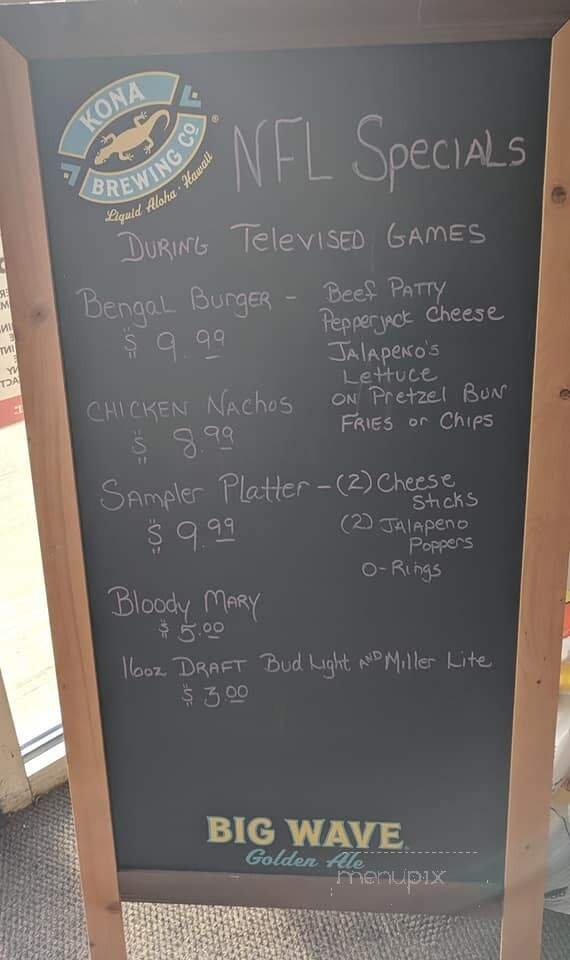 KONA
BREWING CO
®
Liquid Aloha · Hawaii
NFL SPECIALS
DURING TeleVISED GAMES
BengaL BURgeR - Beef PATTY
$ 9.99 Pepperjack Cheese
JALApeno's
Lettuce
CHICKEN NACHOS ON Pretzel BUN
$ 8.99 FRIES or CHIPS
SAmpler Platter - (2) Cheese
Sticks
$ 9.99 (2) JALApeno
Poppers
O-Rings
Bloody MARY
$ 5.00
16oz DRAFT Bud Light AND Miller Lite
$ 3.00
BIG WAVE
Golden Ale
menupix